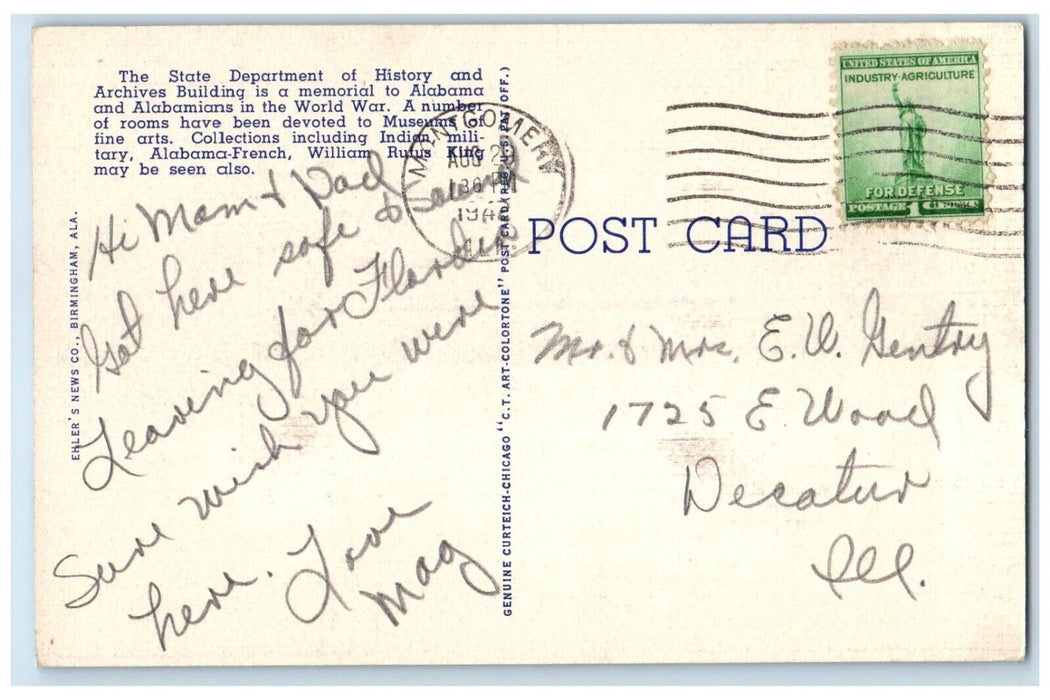 The State Department of History and
Archives Building is a memorial to Alabama
and Alabamians in the World War. A number
of rooms have been devoted to Museums of
fine arts. Collections including Indian, mili-
tary, Alabama-French, William Rufus King
may be seen also.
Hi Mom & Dad
Got here safe & Sound
Leaving for Florida
Sure wish you were
here. Love
Mag
EHLER'S NEWS CO., BIRMINGHAM, ALA.
GENUINE CURTEICH-CHICAGO "C.T. ART-COLORTONE" POST CARD (REG. U.S. PAT. OFF.)
MONTGOMERY
AUG
PM
POST CARD
UNITED STATES OF AMERICA
INDUSTRY·AGRICULTURE
FOR DEFENSE
POSTAGE 1¢
Mr. & Mrs. E. W. Gentry
1725 E. Wood
Decatur
Ill.